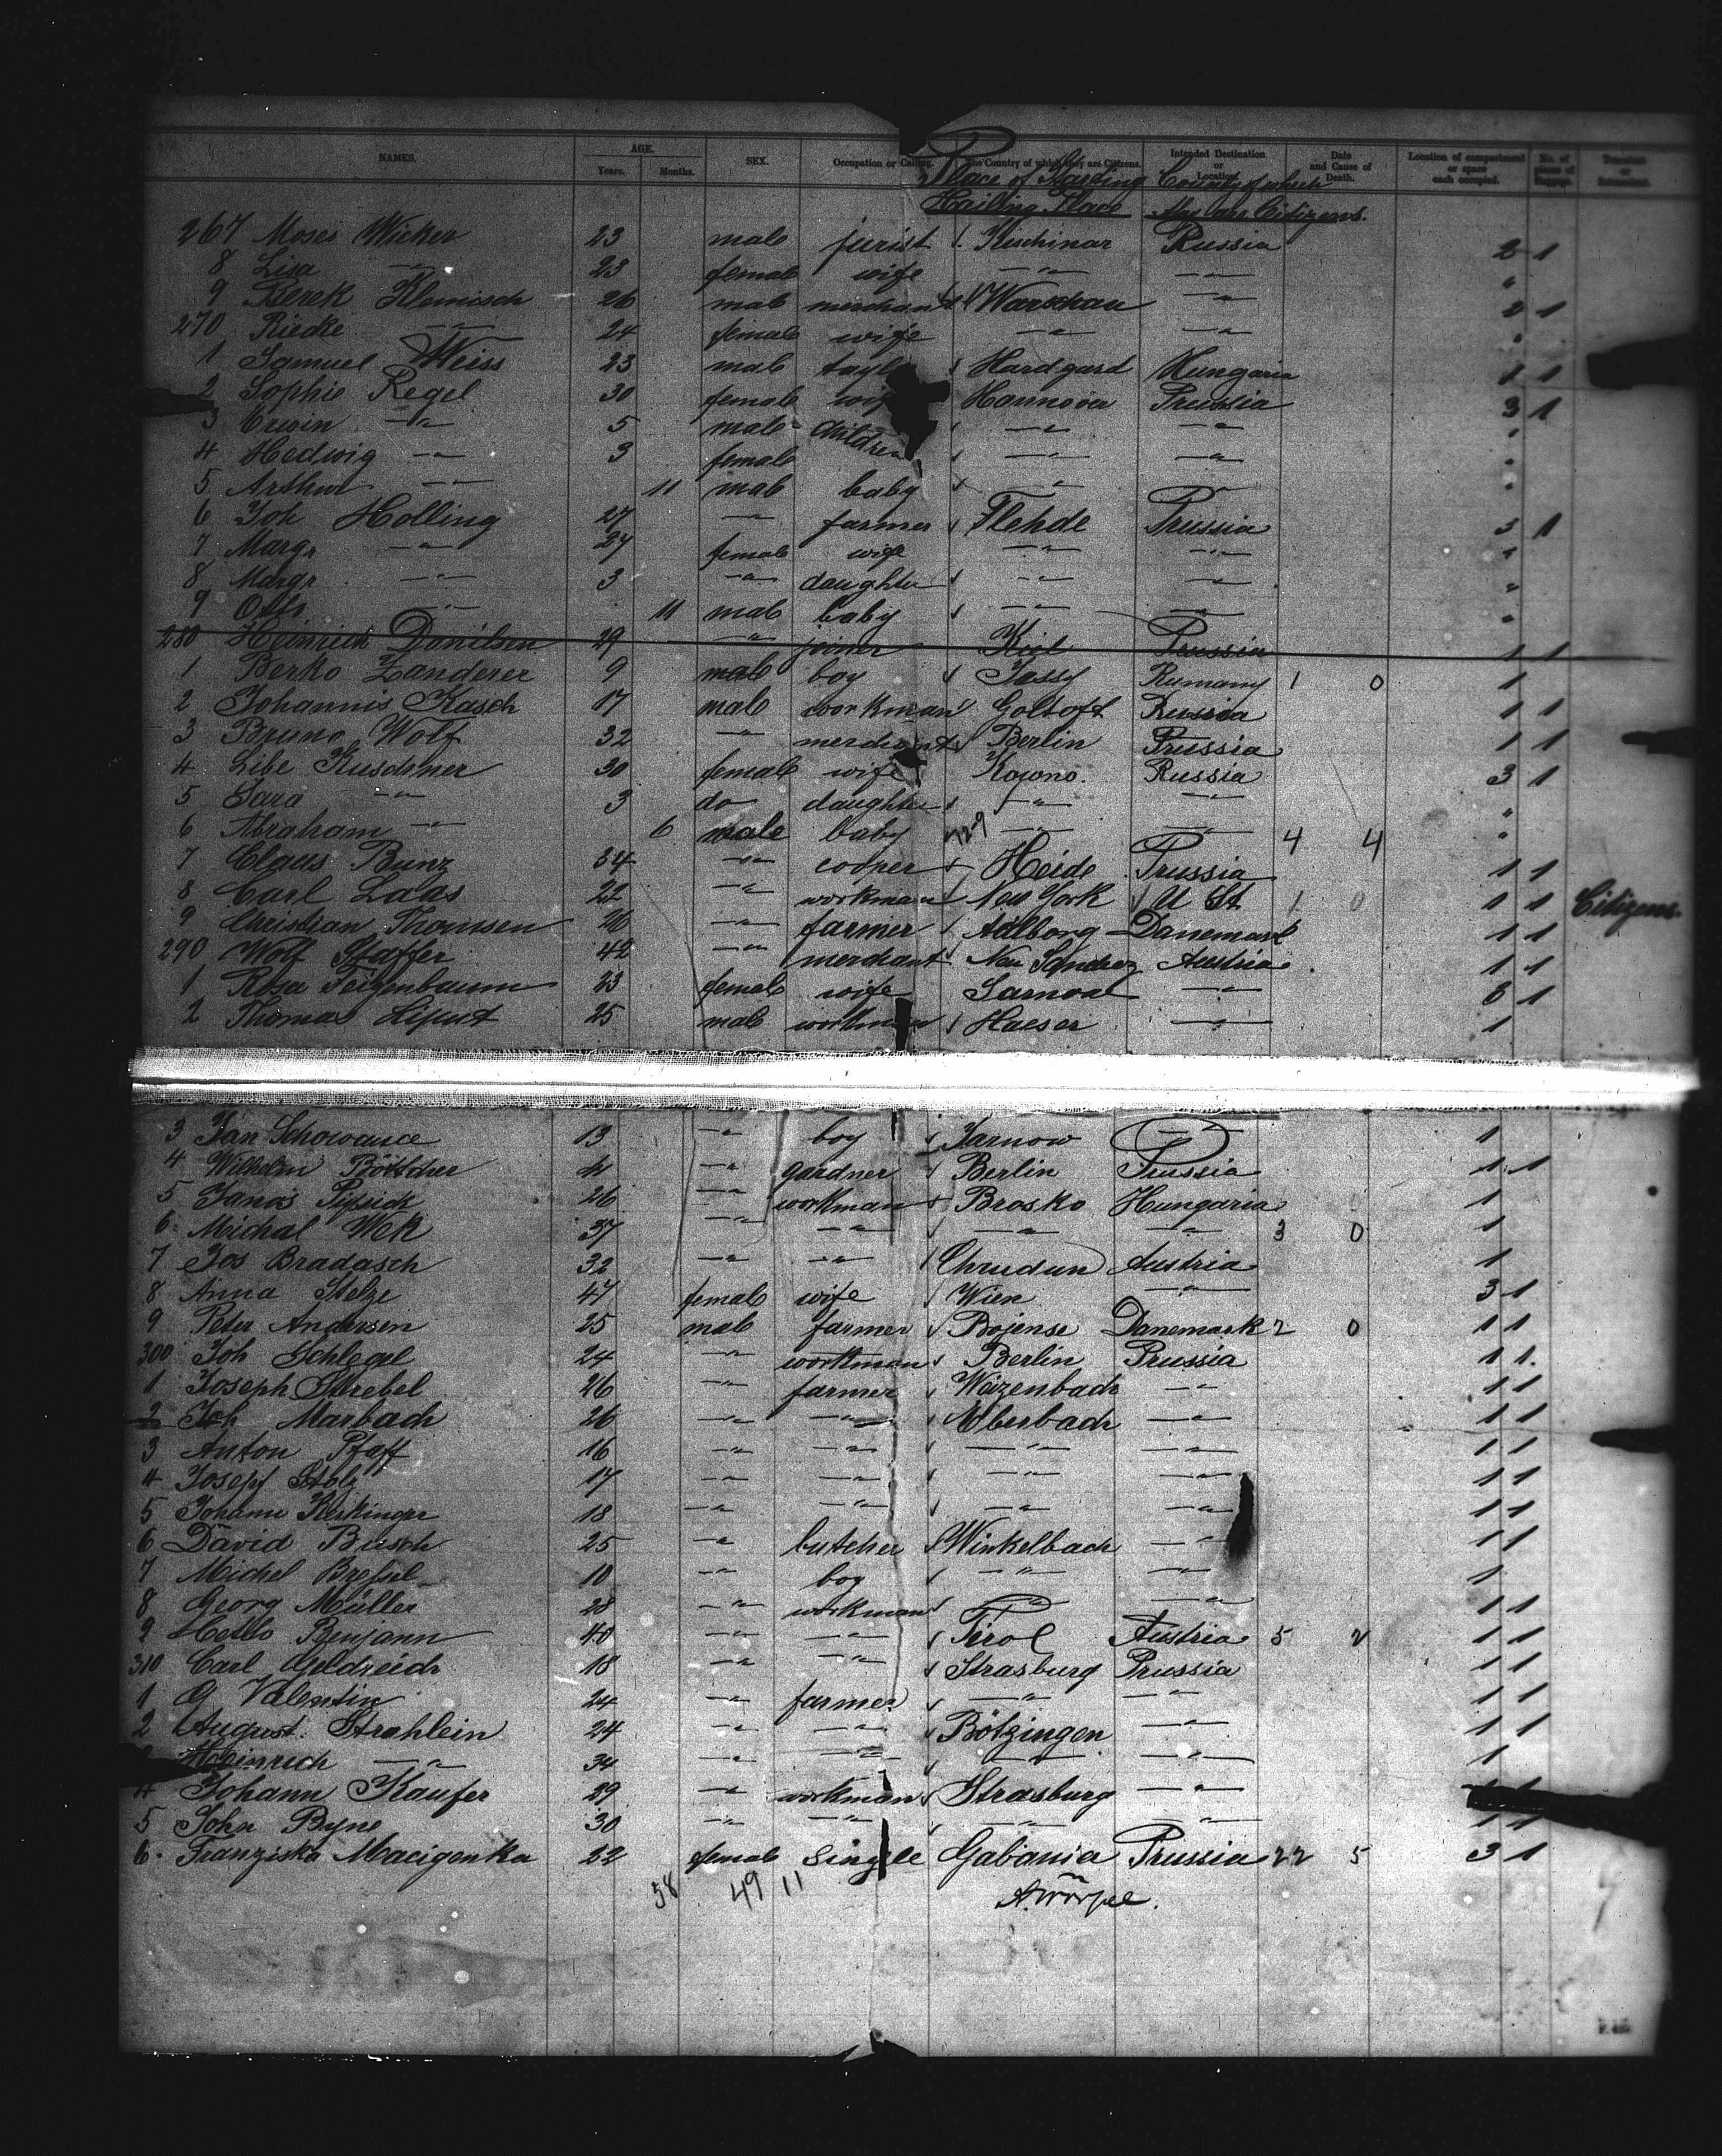 NAMES. AGE. Years. Months. SEX. Occupation or Calling. The Country of which they are Citizens. Intended Destination or Location. Date and Cause of Death. Location of compartment or space each occupied. No. of pieces of Baggage.
Place of Starting County of which
Hailing Place they are Citizens.
267 Moses Wicker 23 male jurist Kischinar Russia 2 1
8 Lisa -"- 23 female wife -"- -"- "
9 Berek Klemisch 26 male merchant Warschau -"- 2 1
270 Riecke -"- 24 female wife -"- -"- "
1 Samuel Weiss 23 male Hardgard Hungaria 1 1
2 Sophie Regel 30 female Hannover Prussia 3 1
3 Erwin -"- 5 male children -"- -"- "
4 Hedwig -"- 3 female -"- -"- "
5 Arthur -"- 11 male baby -"- -"- "
6 Joh Holling 27 -"- farmer Flehde Prussia 3 1
7 Margr -"- 27 female wife -"- -"- "
8 Margr -"- 3 -"- daughter -"- -"- "
9 Otto -"- 11 male baby -"- -"- "
280 Heinrich Danilsen 29 -"- joiner Kiel Prussia 1 1
1 Berko Zanderer 9 male boy Jassy Rumany 1 0 1
2 Johannis Kasch 17 male workman Goltoft Russia 1 1
3 Bruno Wolf 32 -"- merchant Berlin Prussia 1 1
4 Libe Kuschner 30 female wife Kowno. Russia 3 1
5 Sara -"- 3 do daughter -"- -"- "
6 Abraham -"- 6 male baby -"- -"- 4 4 "
7 Claus Bunz 34 -"- cooper Heide Prussia 1 1
8 Carl Laas 22 -"- workman New York U St. 1 0 1 1 Citizens.
9 Christian Thomsen 26 -"- farmer Aalborg Danemark 1 1
290 Wolf Staffer 42 -"- merchant Neu Sandez Austria 1 1
1 Rosa Feigenbaum 23 female wife -"- 6 1
2 Thomas Liput 25 male workman Haeser -"- 1
3 Jan Schowance 13 -"- boy Tarnow -"- 1
4 Wilhelm Böttcher -"- gardner Berlin Prussia 1 1
5 Janos 26 -"- workman Brosko Hungaria 1
6 Michal Wek 37 -"- -"- -"- -"- 3 0 1
7 Jos Bradasch 32 -"- -"- Chrudun Austria 1
8 Anna Stelze 47 female wife Wien -"- 3 1
9 Peter Andersen 25 male farmer Bojense Danemark 2 0 1 1
300 Joh Schlegel 24 -"- workman Berlin Prussia 1 1
1 Joseph Strebel 26 -"- farmer Waizenbach -"- 1 1
2 Joh Marbach 26 -"- -"- Eberbach -"- 1 1
3 Anton Pfaff 16 -"- -"- -"- -"- 1 1
4 Josef Stolz 17 -"- -"- -"- -"- 1 1
5 Johann 18 -"- -"- -"- -"- 1 1
6 David Busch 25 -"- butcher Winkelbach -"- 1 1
7 Michel 10 -"- boy -"- -"- 1
8 Georg Müller 28 -"- workman -"- -"- 1 1
9 Benjann 40 -"- -"- Tirol Austria 5 2 1 1
310 Carl Geldreich 18 -"- -"- Strasburg Prussia 1 1
1 G Valentin 24 -"- farmer -"- -"- 1 1
2 August Strahlein 24 -"- -"- Bötzingen -"- 1 1
Heinrich -"- 34 -"- -"- -"- -"- 1
4 Johann Kaufer 29 -"- workman Strasburg -"- 1
5 John Byne 30 -"- -"- -"- -"- 1 1
6 Franziska Macigenka 22 female single Gabania Prussia 22 5 3 1
58 49 11